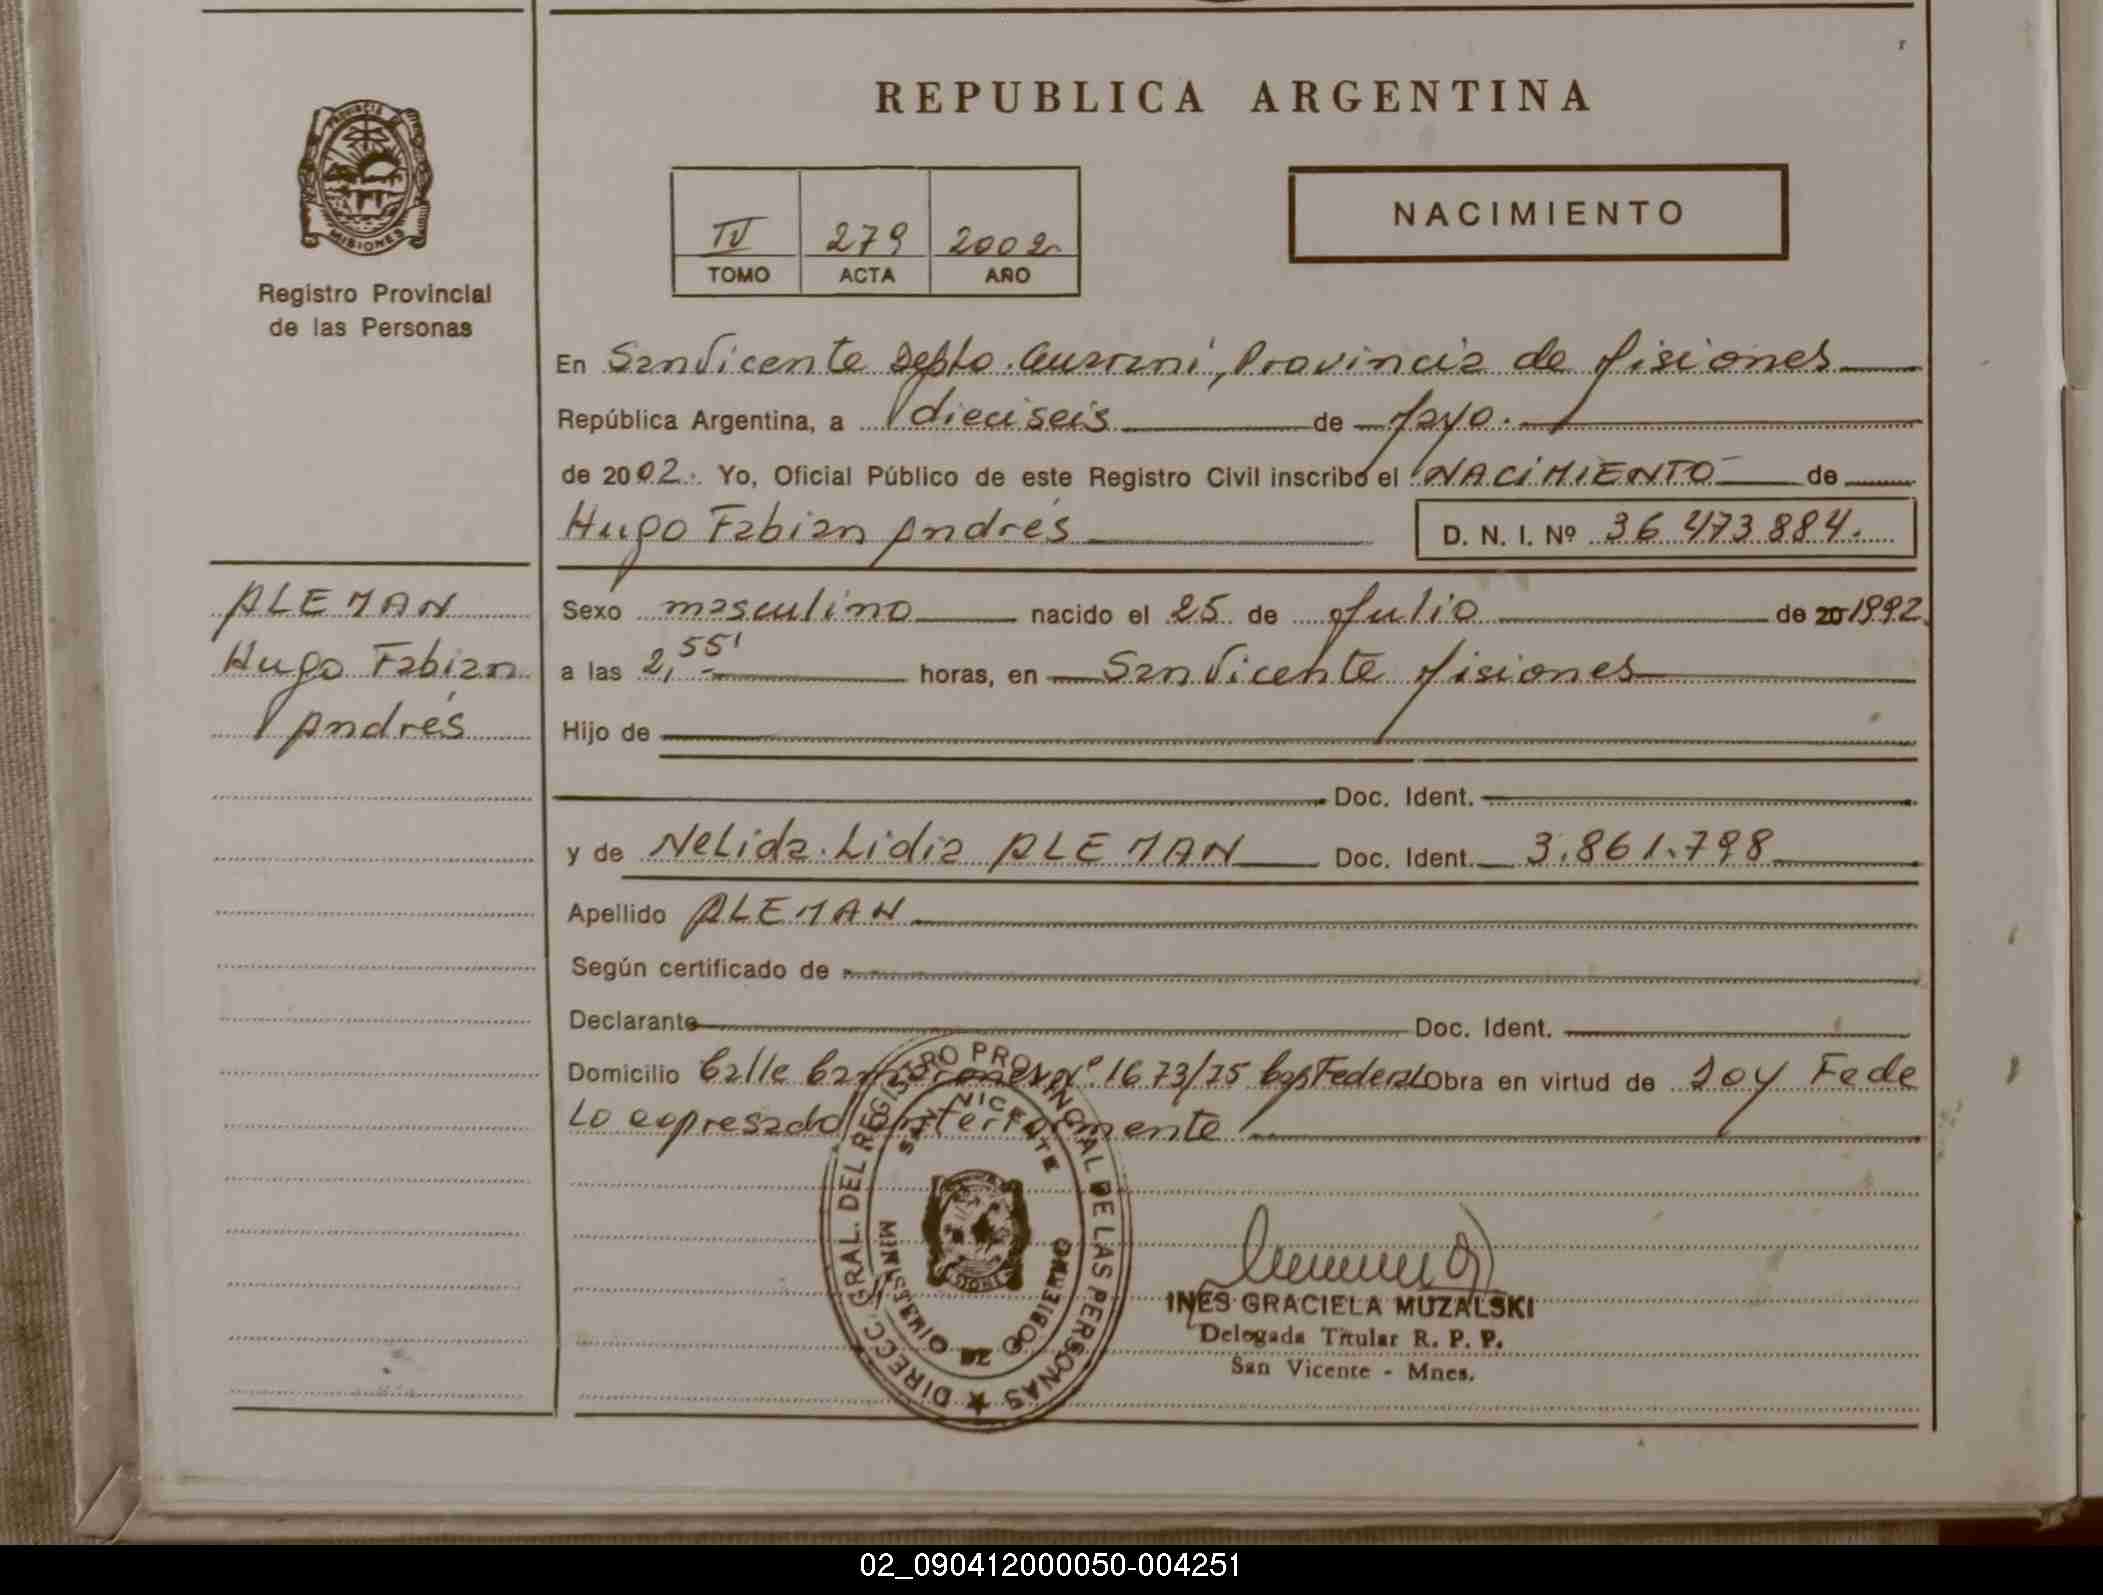 REPUBLICA ARGENTINA
PROVINCIA DE MISIONES
Registro Provincial
de las Personas
IV 279 2002
TOMO ACTA AÑO
NACIMIENTO
En San Vicente Depto. Guaraní, Provincia de Misiones
República Argentina, a dieciseis de Mayo.
de 2002. Yo, Oficial Público de este Registro Civil inscribo el NACIMIENTO de
Hugo Fabian Andrés D. N. I. Nº 36 473 884.
ALEMAN
Hugo Fabian
Andrés
Sexo masculino nacido el 25 de Julio de 20 1992
a las 2,55' horas, en San Vicente Misiones
Hijo de
Doc. Ident.
y de Nelida Lidia ALEMAN Doc. Ident. 3.861.798
Apellido ALEMAN
Según certificado de
Declarante Doc. Ident.
Domicilio Calle nº 1673/75 Cap Federal Obra en virtud de Doy Fe de
Lo expresado anteriormente
DIRECC. GRAL. DEL REGISTRO PROVINCIAL DE LAS PERSONAS
SAN VICENTE
MINISTERIO DE GOBIERNO
INES GRACIELA MUZALSKI
Delegada Titular R. P. P.
San Vicente - Mnes.
02_090412000050-004251